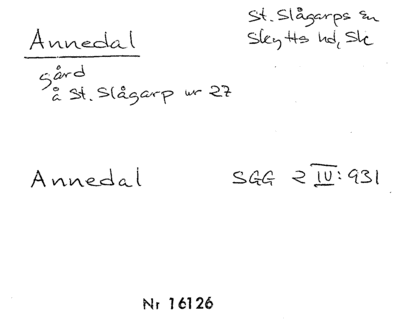 Annedal
St. Slågarps sn
Skytts hd, Sk
gård
å St. Slågarp nr 27
Annedal
SGG 2 IV: 931
Nr 16126